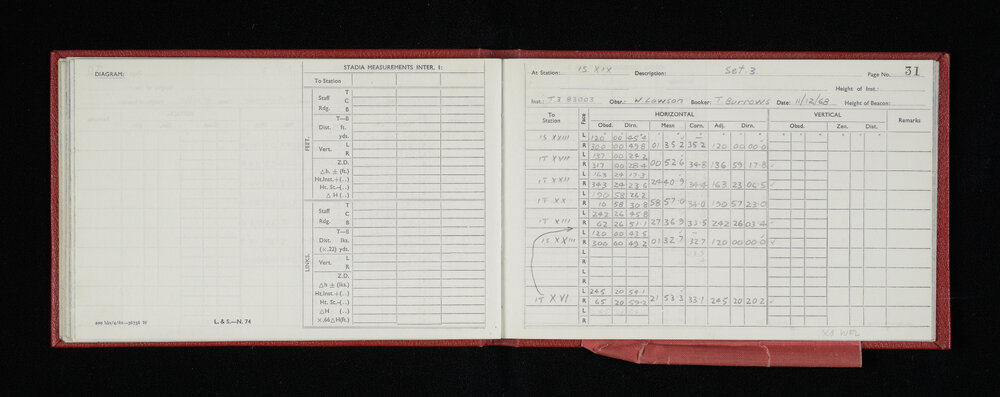 DIAGRAM:
STADIA MEASUREMENTS INTER. 1:
To Station
FEET.
Staff
Rdg.
T
C
B
T—B
Dist. ft.
yds.
Vert.
L
R
Z.D.
△h ± (ft.)
Ht.Inst.+(..)
Ht. St.—(..)
△ H (..)
LINKS.
Staff
Rdg.
T
C
B
T—B
Dist. lks.
(×.22) yds.
Vert.
L
R
Z.D.
△h ± (lks.)
Ht.Inst.+(..)
Ht. St.—(..)
△H (..)
×.66△H(ft.)
L. & S.—N. 74
At Station: IS XIX Description: Set 3 Page No. 31
Height of Inst.:
Inst.: T3 83003 Obsr.: W. Lawson Booker: T Burrows Date: 11/12/68 Height of Beacon:
To Station Face HORIZONTAL VERTICAL Remarks
Obsd. Dirn. Mean Corn. Adj. Dirn. Obsd. Zen. Dist.
IS XXIII L 120 00 45.4
R 300 00 49.8 01 35.2 35.2 120 00 00.0
IT XVII L 137 00 24.2
R 317 00 28.4 00 52.6 34.8 136 59 17.8
IT XXII L 163 24 17.3
R 343 24 23.6 24 40.9 34.4 163 23 06.5
IT XX L 190 58 26.2
R 10 58 30.8 58 57.0 34.0 190 57 23.0
IT XVIII L 242 26 45.8
R 62 26 51.1 27 36.9 33.5 242 26 03.4
IS XXIII L 120 00 43.5
R 300 00 49.2 01 32.7 32.7 120 00 00.0
L
R
L
R
IT XVI L 245 20 54.1
R 65 20 59.2 21 53.3 33.1 245 20 20.2
L
R